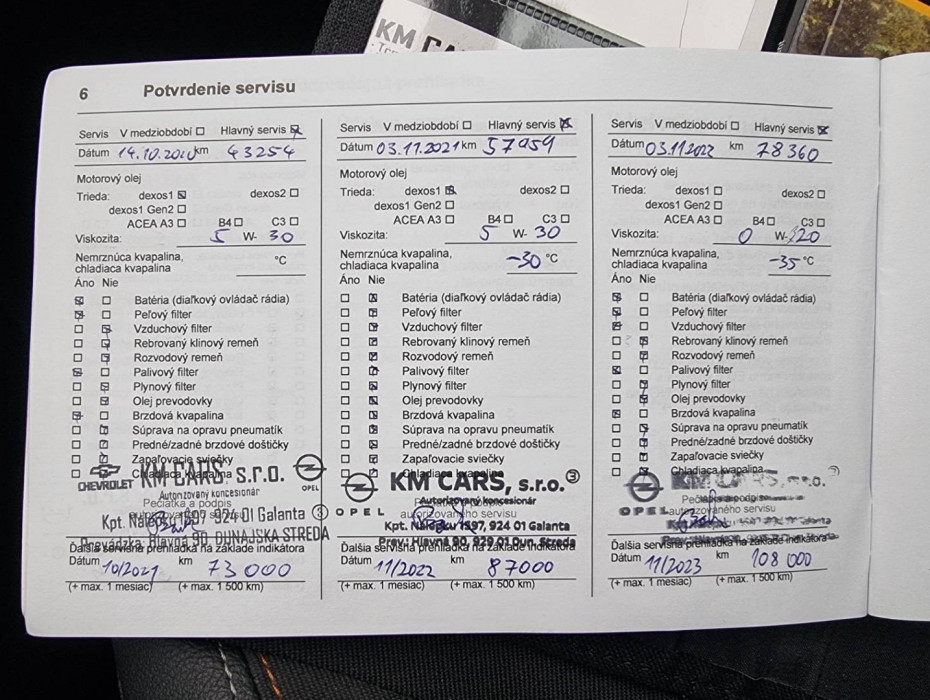 KM CARS
6 Potvrdenie servisu
Servis V medziobdobí ☐ Hlavný servis ☒
Dátum 14.10.2020 km 43254
Motorový olej
Trieda: dexos1 ☒ dexos2 ☐
dexos1 Gen2 ☐
ACEA A3 ☐ B4 ☐ C3 ☐
Viskozita: 5 W- 30
Nemrznúca kvapalina, °C
chladiaca kvapalina
Áno Nie
☒ ☐ Batéria (diaľkový ovládač rádia)
☒ ☐ Peľový filter
☐ ☒ Vzduchový filter
☐ ☒ Rebrovaný klinový remeň
☐ ☒ Rozvodový remeň
☒ ☐ Palivový filter
☐ ☒ Plynový filter
☐ ☒ Olej prevodovky
☒ ☐ Brzdová kvapalina
☐ ☒ Súprava na opravu pneumatík
☐ ☒ Predné/zadné brzdové doštičky
☐ ☒ Zapaľovacie sviečky
☐ ☒ Chladiaca kvapalina
CHEVROLET KM CARS, s.r.o. OPEL
Autorizovaný koncesionár
Pečiatka a podpis
autorizovaného servisu
Kpt. Nálepku 1597 924 01 Galanta 3
Prevádzka: Hlavná 90 DUNAJSKÁ STREDA
Ďalšia servisná prehliadka na základe indikátora
Dátum 10/2021 km 73000
(+ max. 1 mesiac) (+ max. 1 500 km)
Servis V medziobdobí ☐ Hlavný servis ☒
Dátum 03.11.2021 km 57959
Motorový olej
Trieda: dexos1 ☒ dexos2 ☐
dexos1 Gen2 ☐
ACEA A3 ☐ B4 ☐ C3 ☐
Viskozita: 5 W- 30
Nemrznúca kvapalina, -30 °C
chladiaca kvapalina
Áno Nie
☐ ☒ Batéria (diaľkový ovládač rádia)
☐ ☒ Peľový filter
☐ ☒ Vzduchový filter
☐ ☒ Rebrovaný klinový remeň
☐ ☒ Rozvodový remeň
☐ ☒ Palivový filter
☐ ☒ Plynový filter
☐ ☒ Olej prevodovky
☐ ☒ Brzdová kvapalina
☐ ☒ Súprava na opravu pneumatík
☐ ☒ Predné/zadné brzdové doštičky
☐ ☒ Zapaľovacie sviečky
☐ ☒ Chladiaca kvapalina
OPEL KM CARS, s.r.o. 3
Autorizovaný koncesionár
autorizovaného servisu
Kpt. Nálepku 1597, 924 01 Galanta
Prev.: Hlavná 90, 929 01 Dun. Streda
Ďalšia servisná prehliadka na základe indikátora
Dátum 11/2022 km 87000
(+ max. 1 mesiac) (+ max. 1 500 km)
Servis V medziobdobí ☐ Hlavný servis ☒
Dátum 03.11.2022 km 78360
Motorový olej
Trieda: dexos1 ☐ dexos2 ☐
dexos1 Gen2 ☐
ACEA A3 ☐ B4 ☐ C3 ☐
Viskozita: 0 W- 20
Nemrznúca kvapalina, -35 °C
chladiaca kvapalina
Áno Nie
☒ ☐ Batéria (diaľkový ovládač rádia)
☒ ☐ Peľový filter
☒ ☐ Vzduchový filter
☐ ☒ Rebrovaný klinový remeň
☐ ☒ Rozvodový remeň
☒ ☐ Palivový filter
☐ ☒ Plynový filter
☐ ☒ Olej prevodovky
☒ ☐ Brzdová kvapalina
☐ ☒ Súprava na opravu pneumatík
☐ ☒ Predné/zadné brzdové doštičky
☐ ☒ Zapaľovacie sviečky
☐ ☒ Chladiaca kvapalina
KM CARS, s.r.o.
Pečiatka a podpis
OPEL autorizovaného servisu
Ďalšia servisná prehliadka na základe indikátora
Dátum 11/2023 km 108 000
(+ max. 1 mesiac) (+ max. 1 500 km)